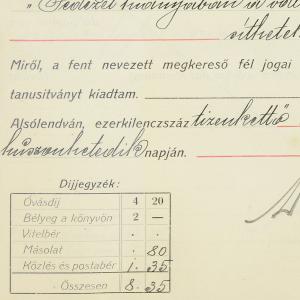 „Fedezet hiányában a vá
síthetet
Miről, a fent nevezett megkereső fél jogai
tanusitványt kiadtam.
Alsólendván, ezerkilenczszáz tizenkettő
huszonhetedik napján.
Dijjegyzék:
Óvásdij 4 20
Bélyeg a könyvön 2 —
Vitelbér . .
Másolat . 80
Közlés és postabér 1 . 35
Összesen 8 . 35